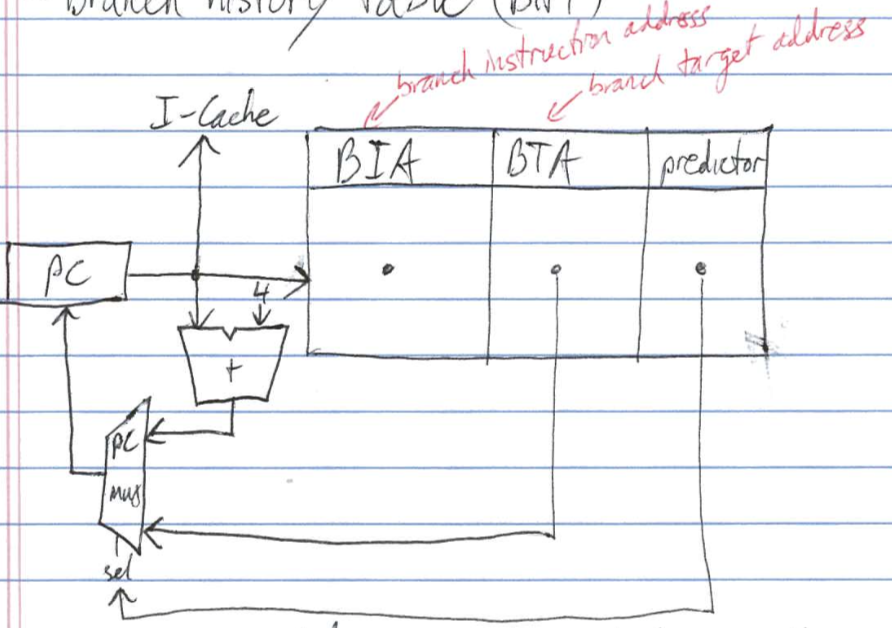 Branch History Table (BHT)
branch instruction address
branch target address
I-Cache
BIA BTA predictor
PC
4
+
PC
mux
sel